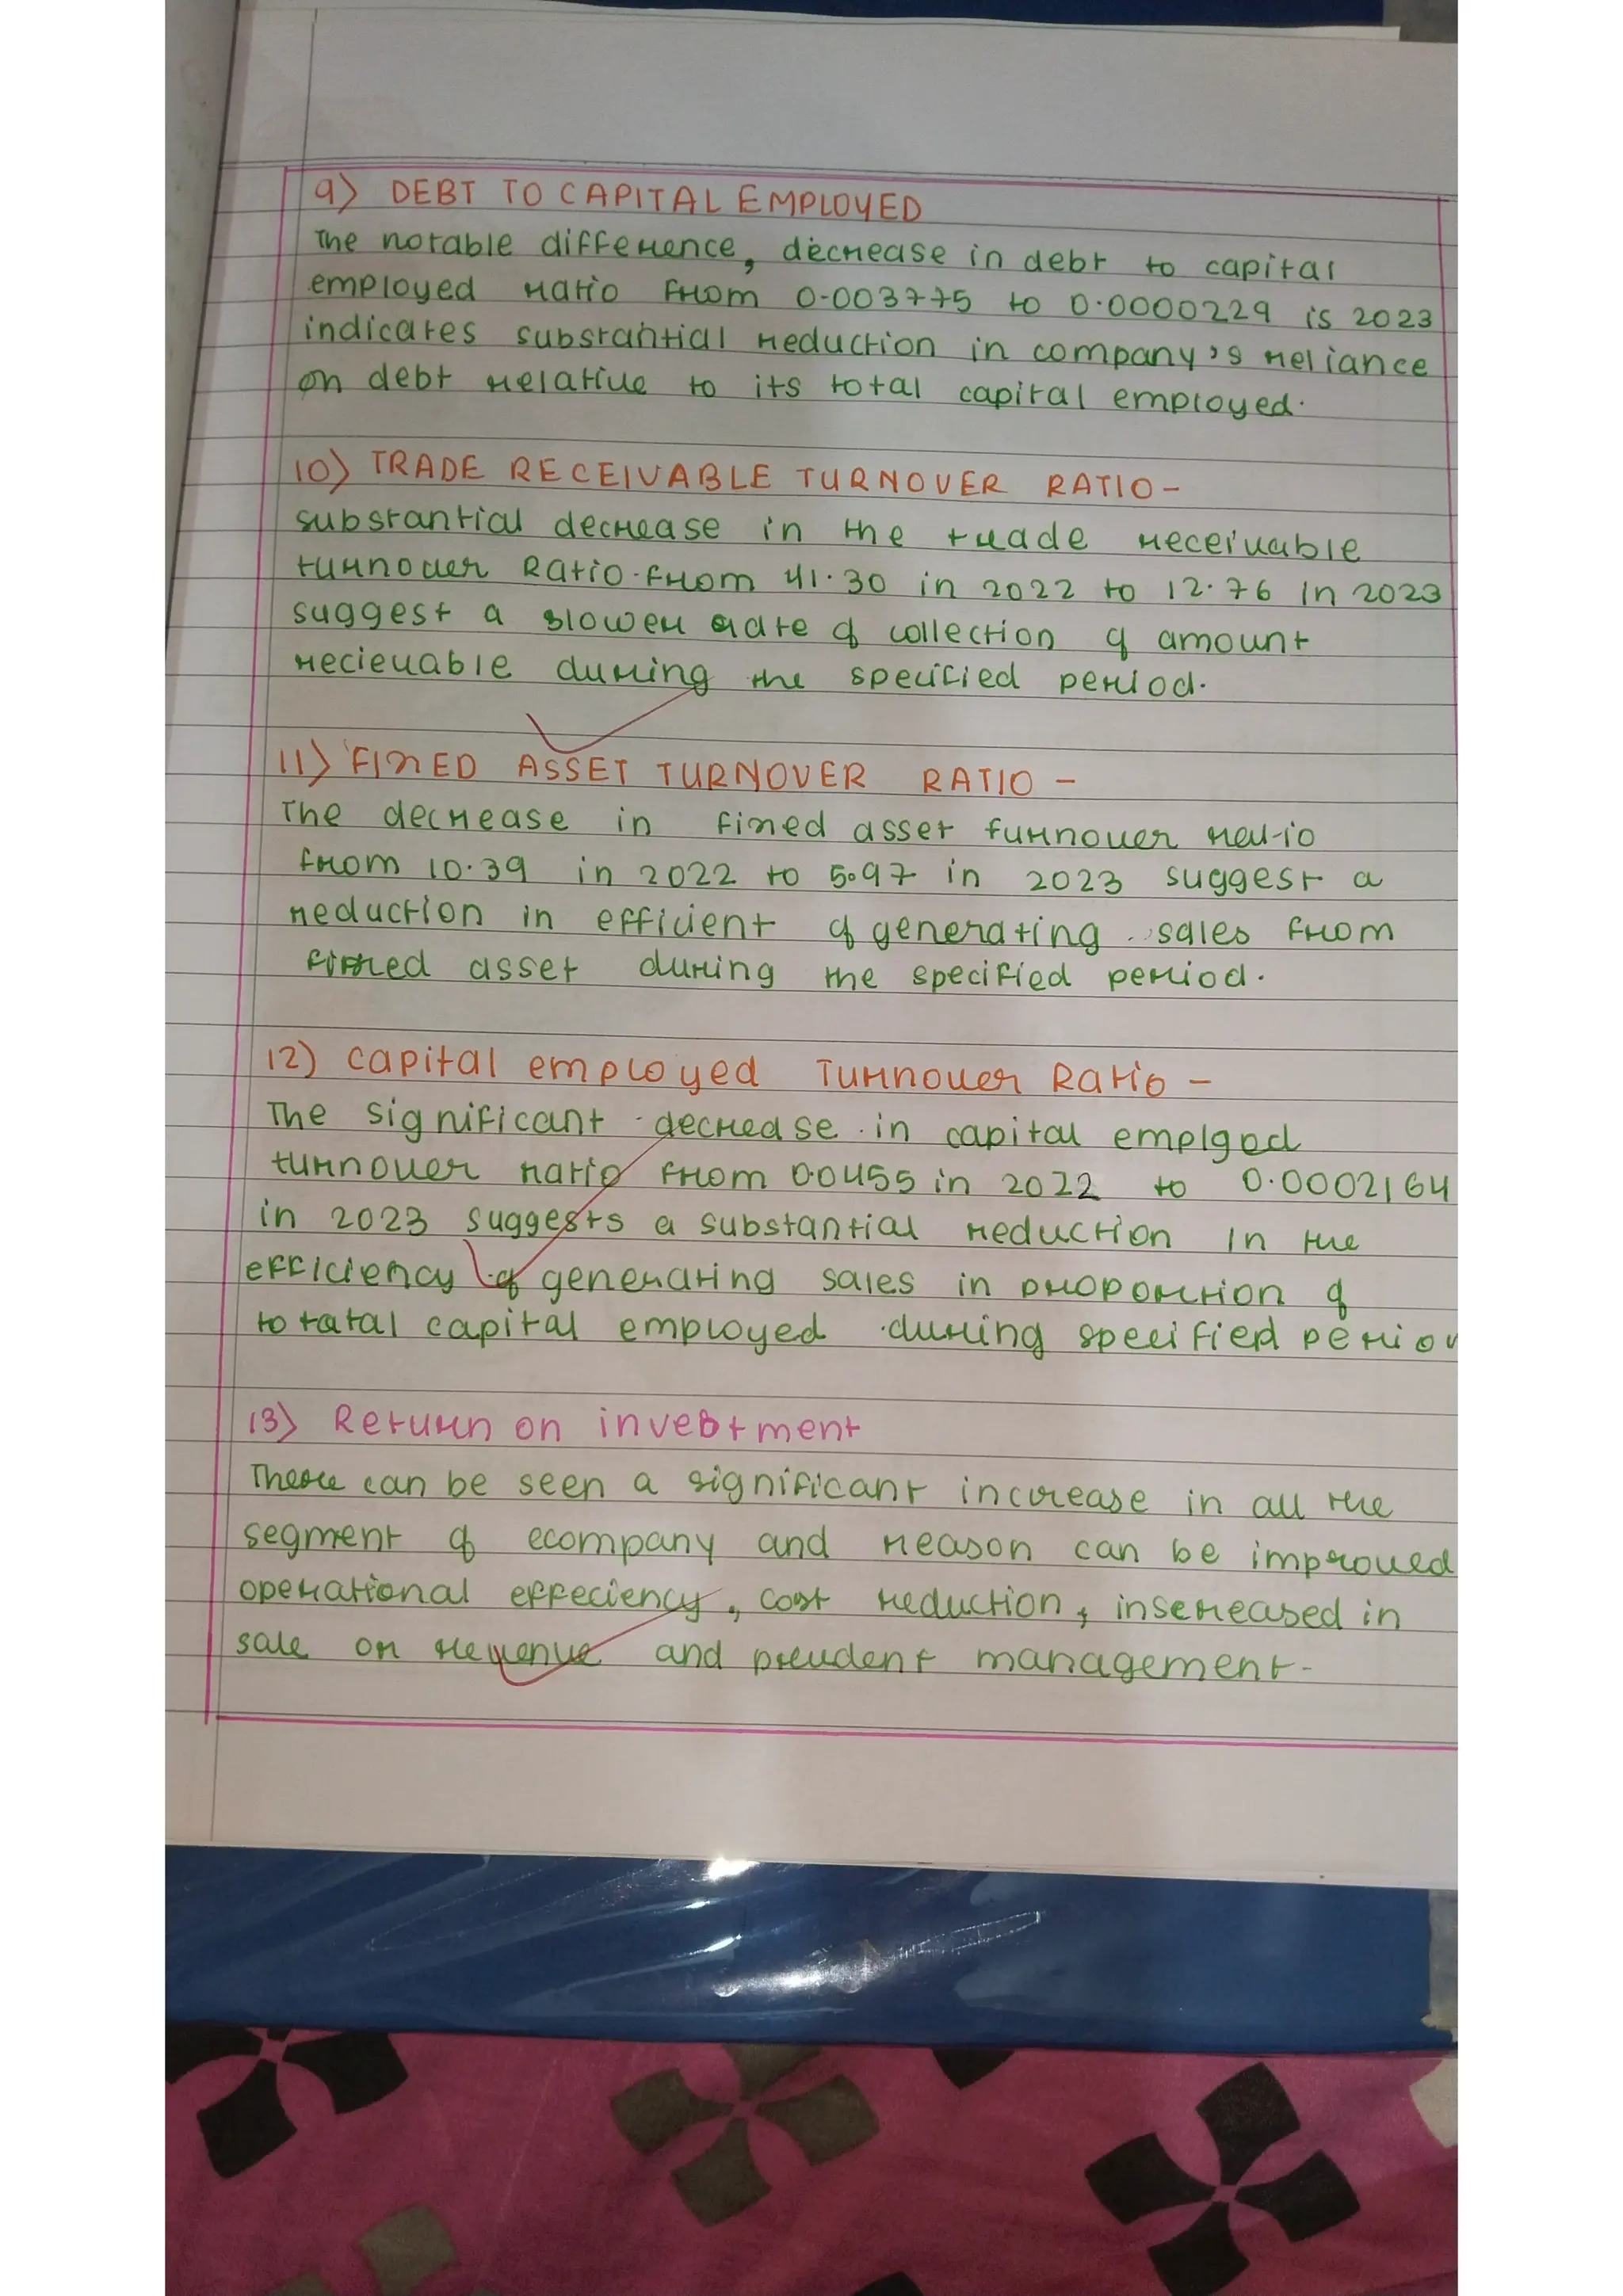 9) DEBT TO CAPITAL EMPLOYED
The notable difference, decrease in debt to capital
employed ratio from 0.003775 to 0.0000229 is 2023
indicates substantial reduction in company's reliance
on debt relative to its total capital employed.
10) TRADE RECEIVABLE TURNOVER RATIO-
substantial decrease in the trade receivable
turnover Ratio. from 41.30 in 2022 to 12.76 in 2023
suggest a slower rate of collection of amount
recievable during the specified period.
11) FIXED ASSET TURNOVER RATIO -
The decrease in fixed asset turnover ratio
from 10.39 in 2022 to 5.97 in 2023 suggest a
reduction in efficient of generating sales from
fixed asset during the specified period.
12) capital employed Turnover Ratio -
The significant decrease in capital employed
turnover ratio from 0.0455 in 2022 to 0.0002164
in 2023 suggests a substantial reduction in the
efficiency of generating sales in proportion of
to tatal capital employed during specified period
13) Return on investment
There can be seen a significant increase in all the
segment of ecompany and reason can be improved
operational effeciency, cost reduction, insereased in
sale or revenue and prudent management.